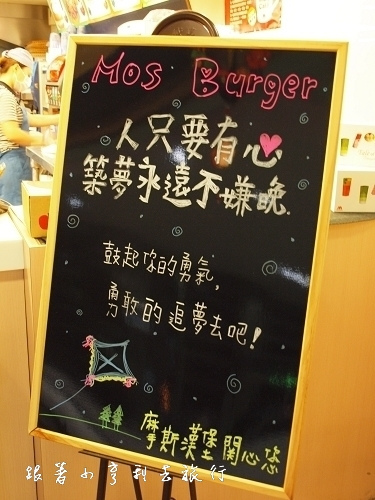 Mos Burger
人只要有心
築夢永遠不嫌晚
鼓起你的勇氣,
勇敢的追夢去吧!
摩斯漢堡關心您
跟著小亨利去旅行